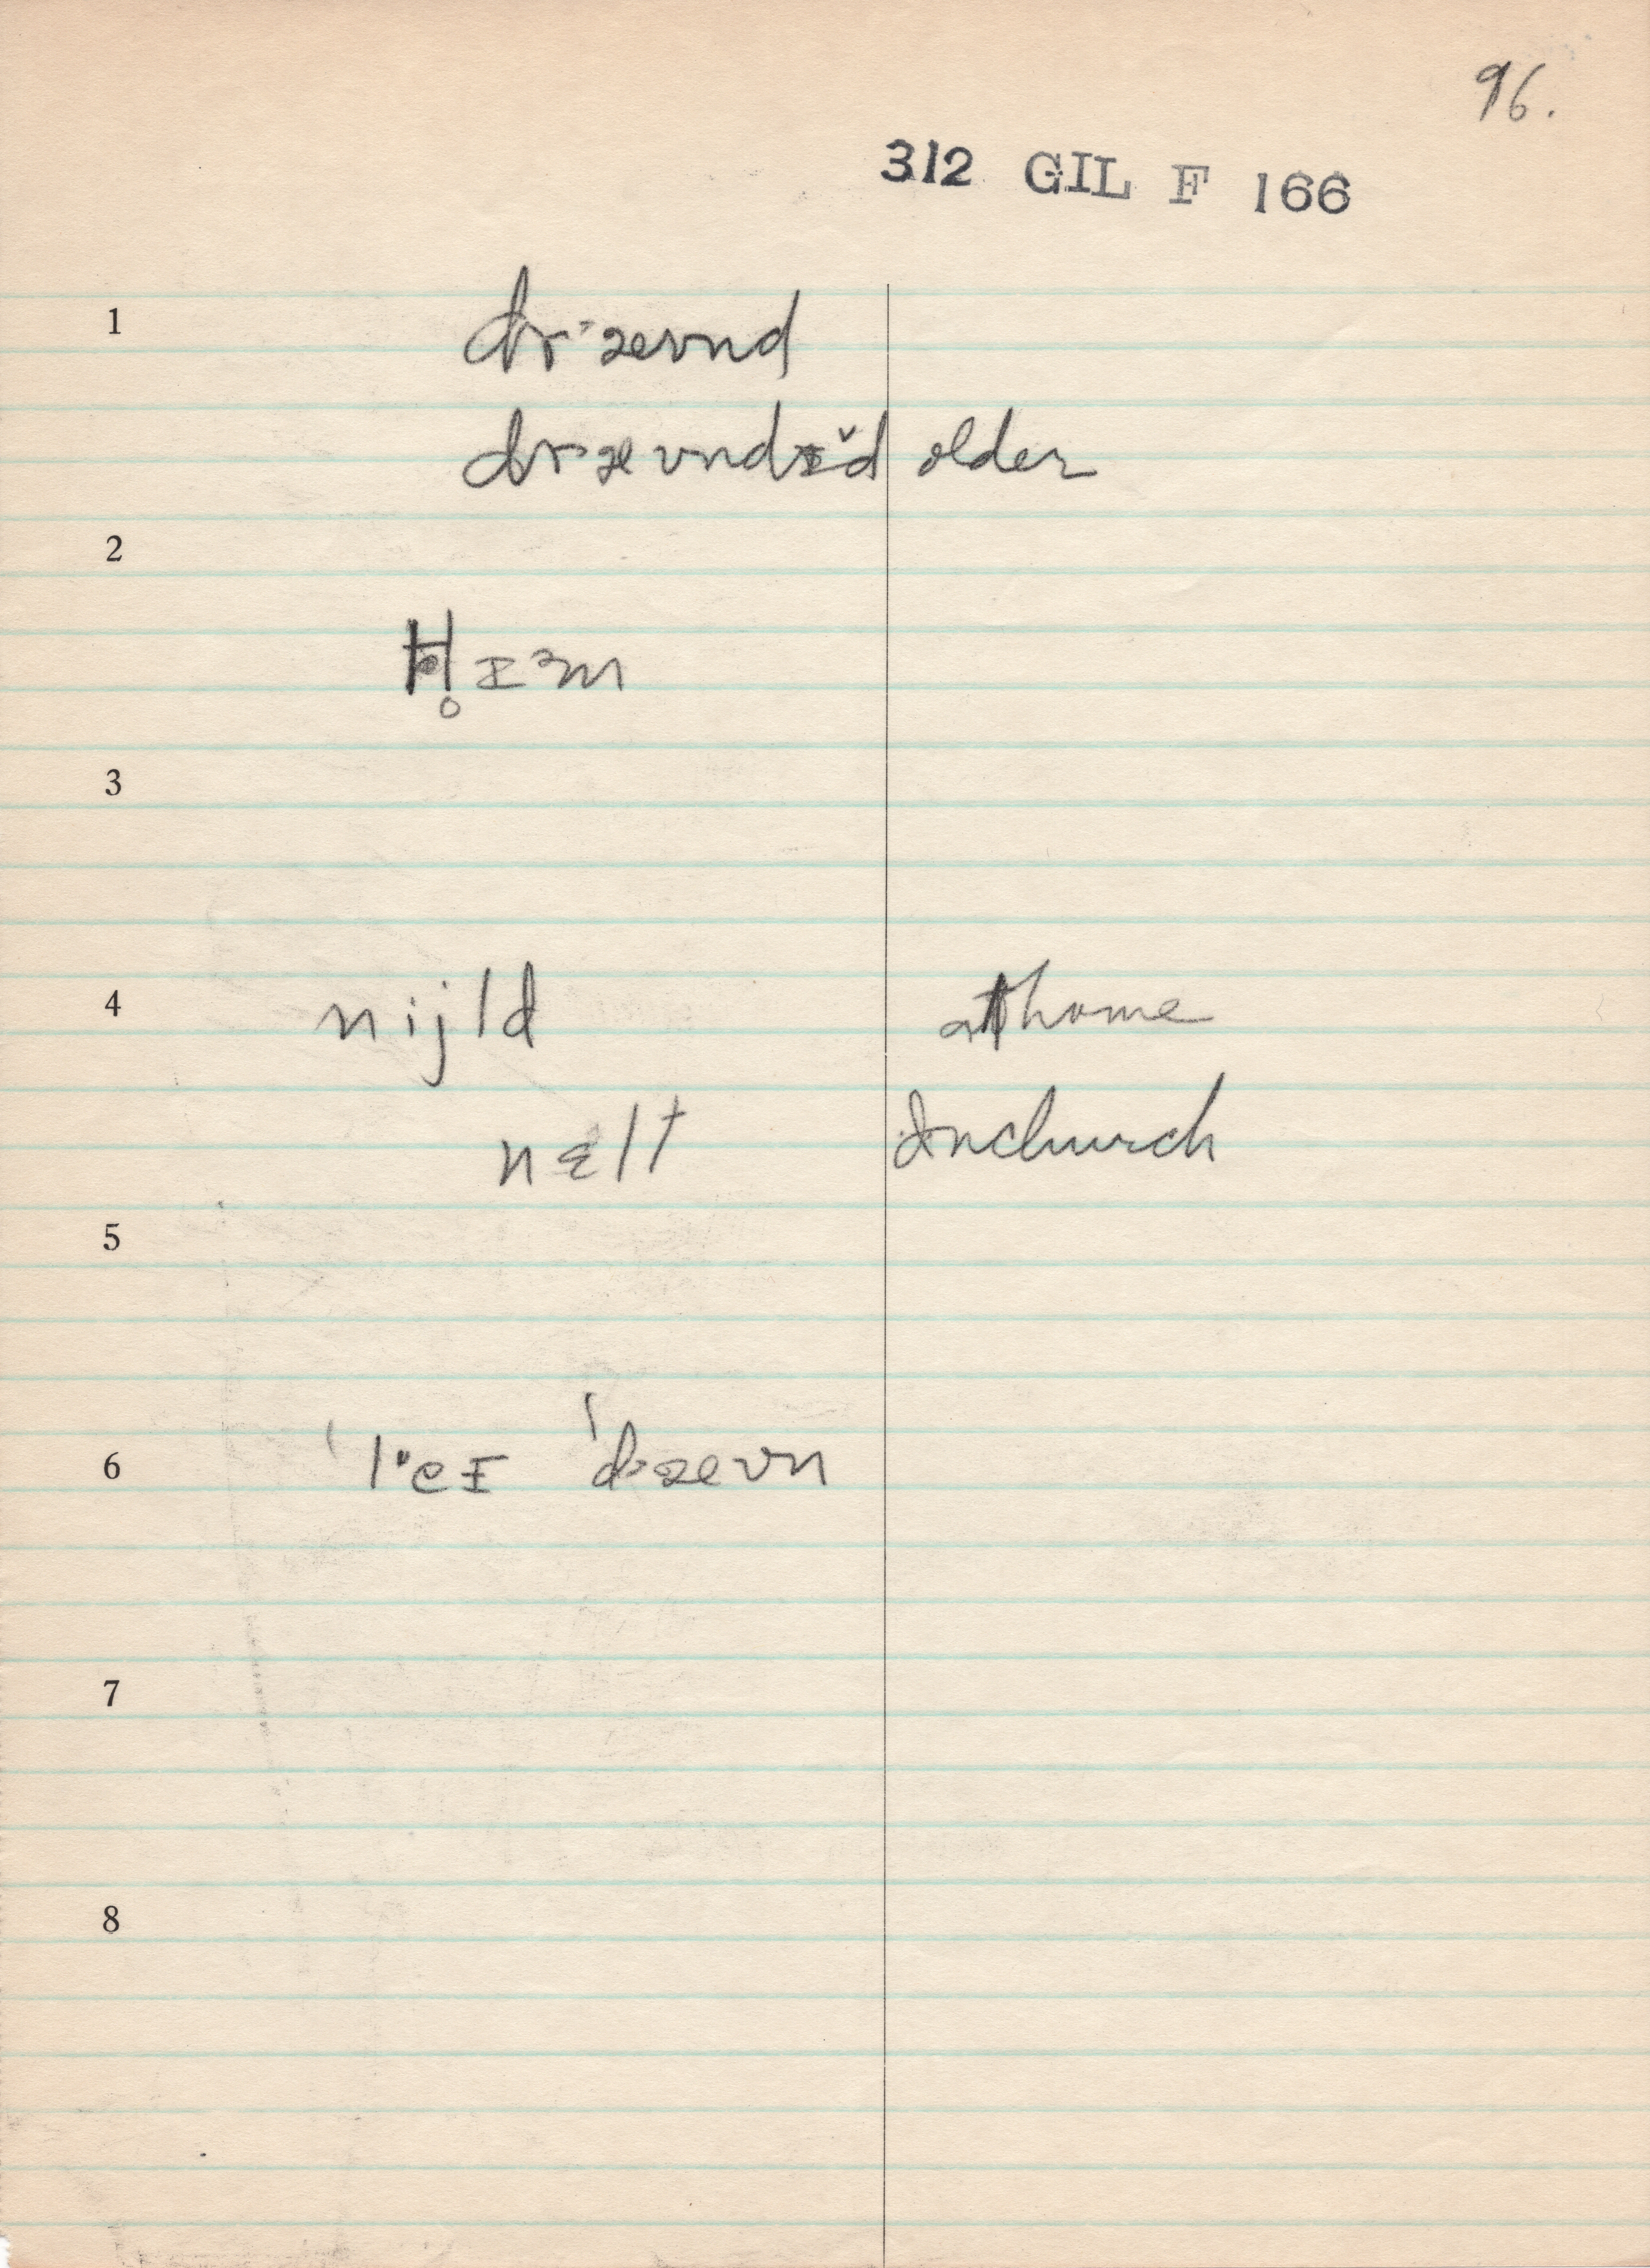 96.
312 GIL F 166
1
dr·ævnd
dr·ævndɪ̌d older
2
ɪɜm
3
4 nijld at home
nɛlt In church
5
6 ˈl·eɪ ˈd·ævn
7
8